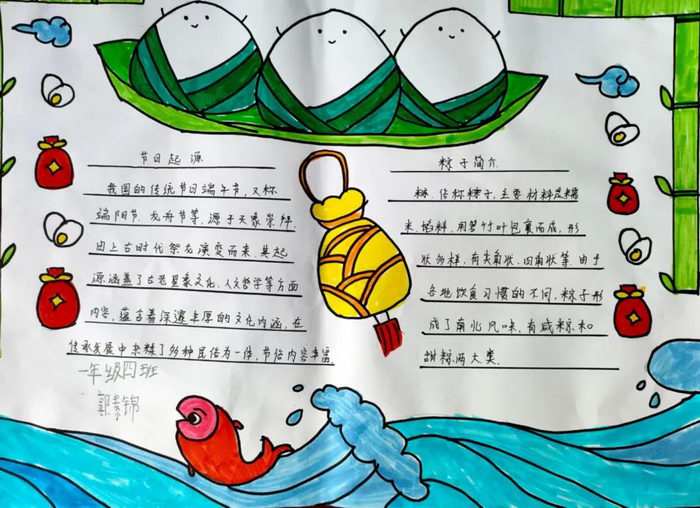 节日起源
我国的传统节日端午节，又称
端阳节、龙舟节等，源于天象崇拜，
由上古时代祭龙演变而来，其起
源涵盖了古老星象文化、人文哲学等方面
内容，蕴含着深邃丰厚的文化内涵，在
传承发展中杂糅了多种民俗为一体，节俗内容丰富
一年级四班
郭素锦
粽子简介
粽，俗称粽子，主要材料是糯
米、馅料，用箬竹叶包裹而成，形
状多样，有尖角状、四角状等。由于
各地饮食习惯的不同，粽子形
成了南北风味，有咸粽和
甜粽两大类。